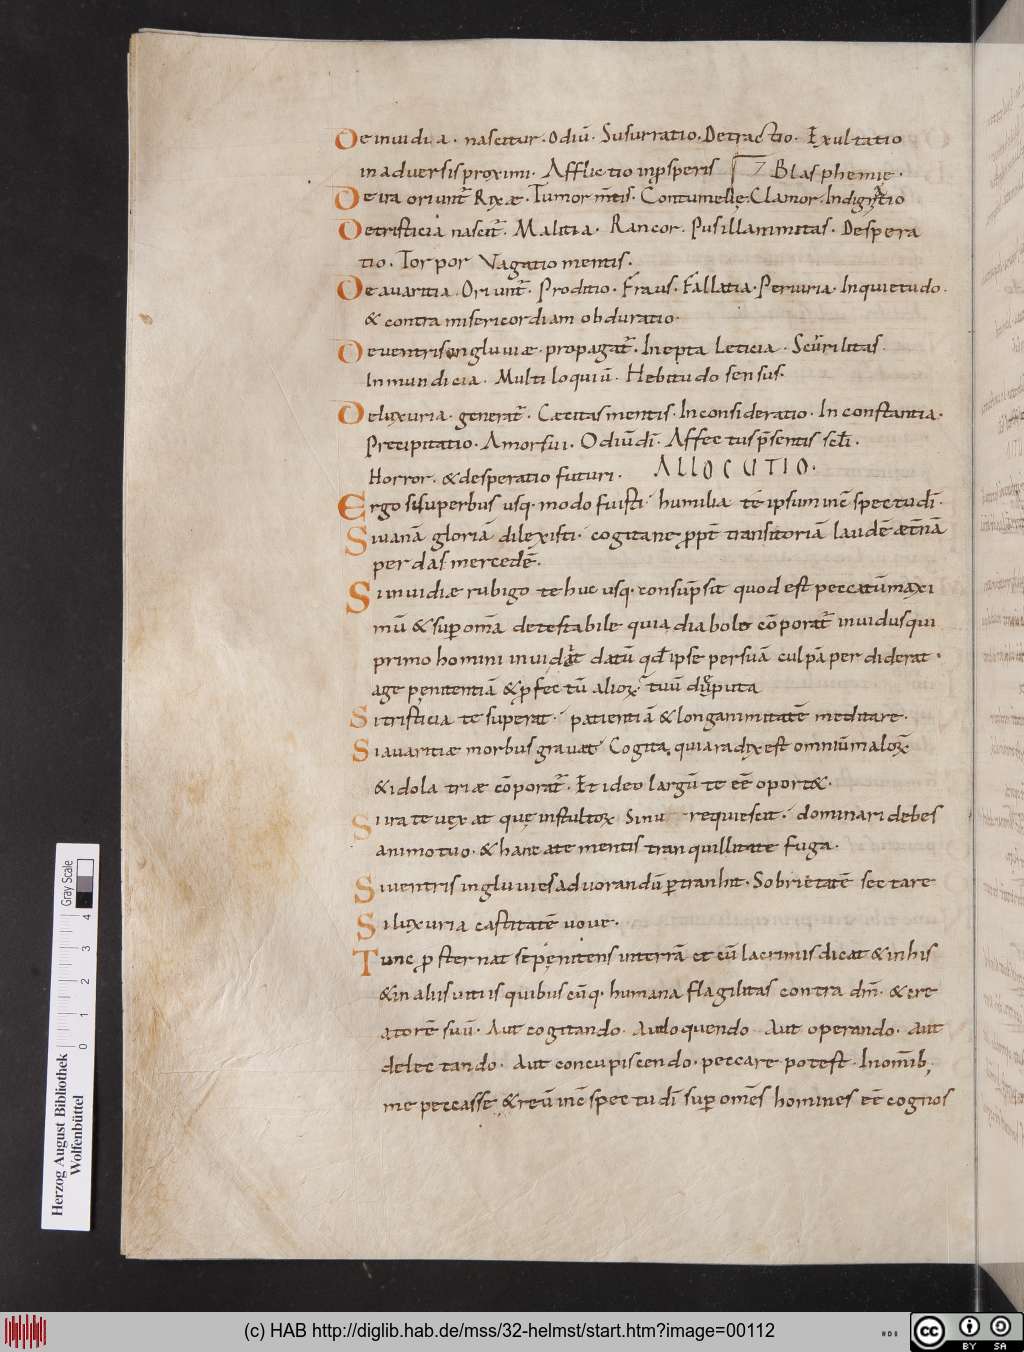 De inuidia · nascitur · odiū · Susurratio · Detractio · Exultatio
in aduersis proximi · Afflictio in p̄speris Blasphemie ·
De ira oriunt̄ Rixæ · Tumor m̄tis · Contumelię · Clamor · Indignatio
De tristicia nascit̄ · Malitia · Rancor · Pusillanimitas · Despera
tio · Torpor Vagatio mentis ·
De auaritia · Oriunt̄ · Proditio · Fraus · Fallatia · Periuria · Inquietudo ·
& contra misericordiam obduratio ·
De uentris ingluuiæ · propagat̄ · Inepta Leticia · Scurrilitas ·
Inmundicia · Multiloquiū · Hebitudo sensus ·
De luxuria · generat̄ · Cæcitas mentis · Inconsideratio · Inconstantia ·
Precipitatio · Amor sui · Odiū dī · Affectus p̄sentis sc̄li ·
Horror · & desperatio futuri · ALLOCUTIO ·
Ergo si superbus usq · modo fuisti humilia té ipsum in c̄spectu dī ·
Si uanā gloriā dilexisti · cogita ne p̄pt̄ transitoriā laudē æt̄nā
perdas mercedē ·
Si inuidiæ rubigo te huc usq · consūpsit quod est peccatū maxi
mū & sup om̄a detestabile quia diabolo cōporat̄ inuidus qui
primo homini inuidit datū qd̄ ipse per suā culpā perdiderat ·
age penitentiā & p̄fectū alioꝝ tuū deputa
Si tristicia te superat · patientiā & longanimitatē meditare ·
Si auaritiæ morbus grauat Cogita quia radix est omniū maloꝝ
& idolatriæ cōporat̄ · Et ideo largū te eē oport& ·
Si ira te uexat quę in stultoꝝ Sinu requiescit · dominari debes
animo tuo · & hanc a te mentis tranquillitate fuga ·
Si uentris ingluuies ad uorandū p̄tranhit · Sobrietatē sectare
Si luxuria castitatē uoue ·
Tunc p̄sternat se pęnitens in terrā et cū lacrimis dicat & in his
& in aliis uitiis quibus cūq · humana flagilitas contra dm̄ · & cre
atorē suū · Aut cogitando · Aut loquendo Aut operando · aut
delectando · aut concupiscendo · peccare potest · In om̄ib;
me peccasse & reū in c̄spectu dī sup om̄es homines eē cognos
Herzog August Bibliothek
Wolfenbüttel
Gray Scale
0 1 2 3 4
(c) HAB http://diglib.hab.de/mss/32-helmst/start.htm?image=00112
cc BY SA